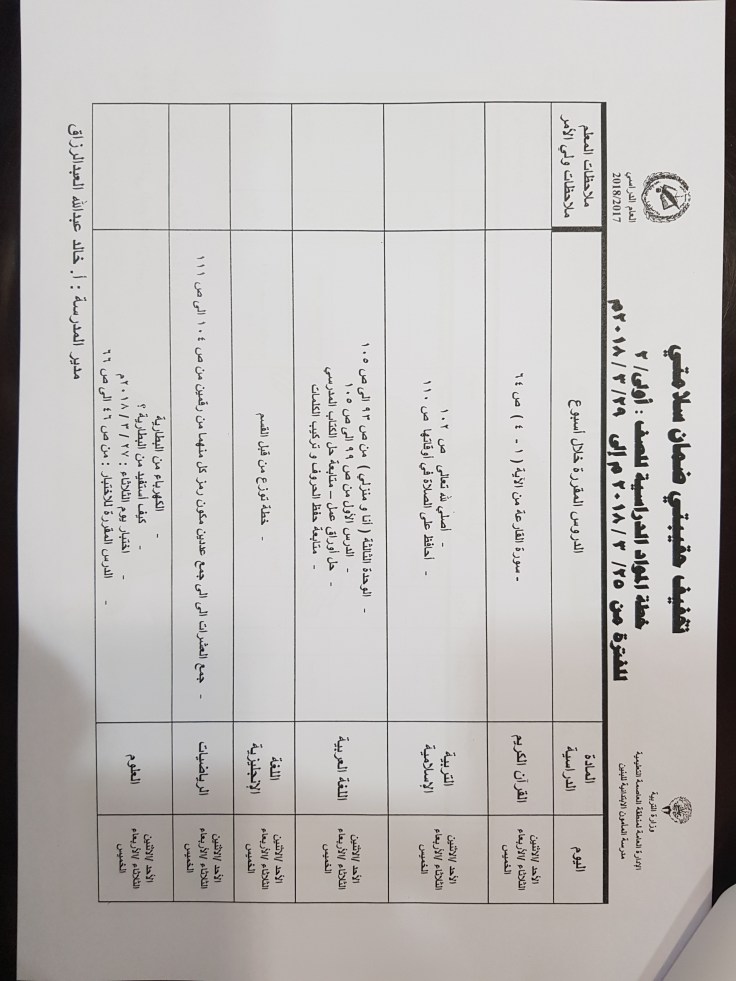 وزارة التربية
الإدارة العامة لمنطقة العاصمة التعليمية
مدرسة المأمون الابتدائية للبنين
العام الدراسي
2018/2017
تخفيف حقيبتي ضمان سلامتي
خطة المواد الدراسية للصف : أولى/ ٢
للفترة من ٢٥/ ٣ / ٢٠١٨ م إلى ٢٩/ ٣ / ٢٠١٨م
اليوم
المادة الدراسية
الدروس المقررة خلال أسبوع
ملاحظات المعلم
ملاحظات ولي الأمر
الأحد /الاثنين
الثلاثاء /الأربعاء
الخميس
القرآن الكريم
- سورة القارعة من الآية ( ١ - ٤ ) ص ٦٤
الأحد /الاثنين
الثلاثاء /الأربعاء
الخميس
التربية
الإسلامية
- أصلي لله تعالى ص ١٠٢
- أحافظ على الصلاة في أوقاتها ص ١١٠
الأحد /الاثنين
الثلاثاء /الأربعاء
الخميس
اللغة العربية
- الوحدة الثالثة ( أنا و منزلي ) من ص ٩٣ الى ص ١٠٥
- الدرس الأول من ص ٩٩ الى ص ١٠٥
- حل أوراق عمل – متابعة حل الكتاب المدرسي
- متابعة حفظ الحروف و تركيب الكلمات
الأحد /الاثنين
الثلاثاء /الأربعاء
الخميس
اللغة
الإنجليزية
- خطة توزع من قبل القسم
الأحد /الاثنين
الثلاثاء /الأربعاء
الخميس
الرياضيات
- جمع العشرات الى الى جمع عددين مكون رمز كل منهما من رقمين من ص ١٠٤ الى ص ١١١
الأحد /الاثنين
الثلاثاء /الأربعاء
الخميس
العلوم
- الكهرباء من البطارية
- كيف أستفيد من البطارية ؟
- اختبار يوم الثلاثاء : ٢٧ / ٣ / ٢٠١٨م
- الدرس المقررة للاختبار : من ص ٤٦ الى ص ٦٦
مدير المدرسة : أ. خالد عبدالله العبدالرزاق